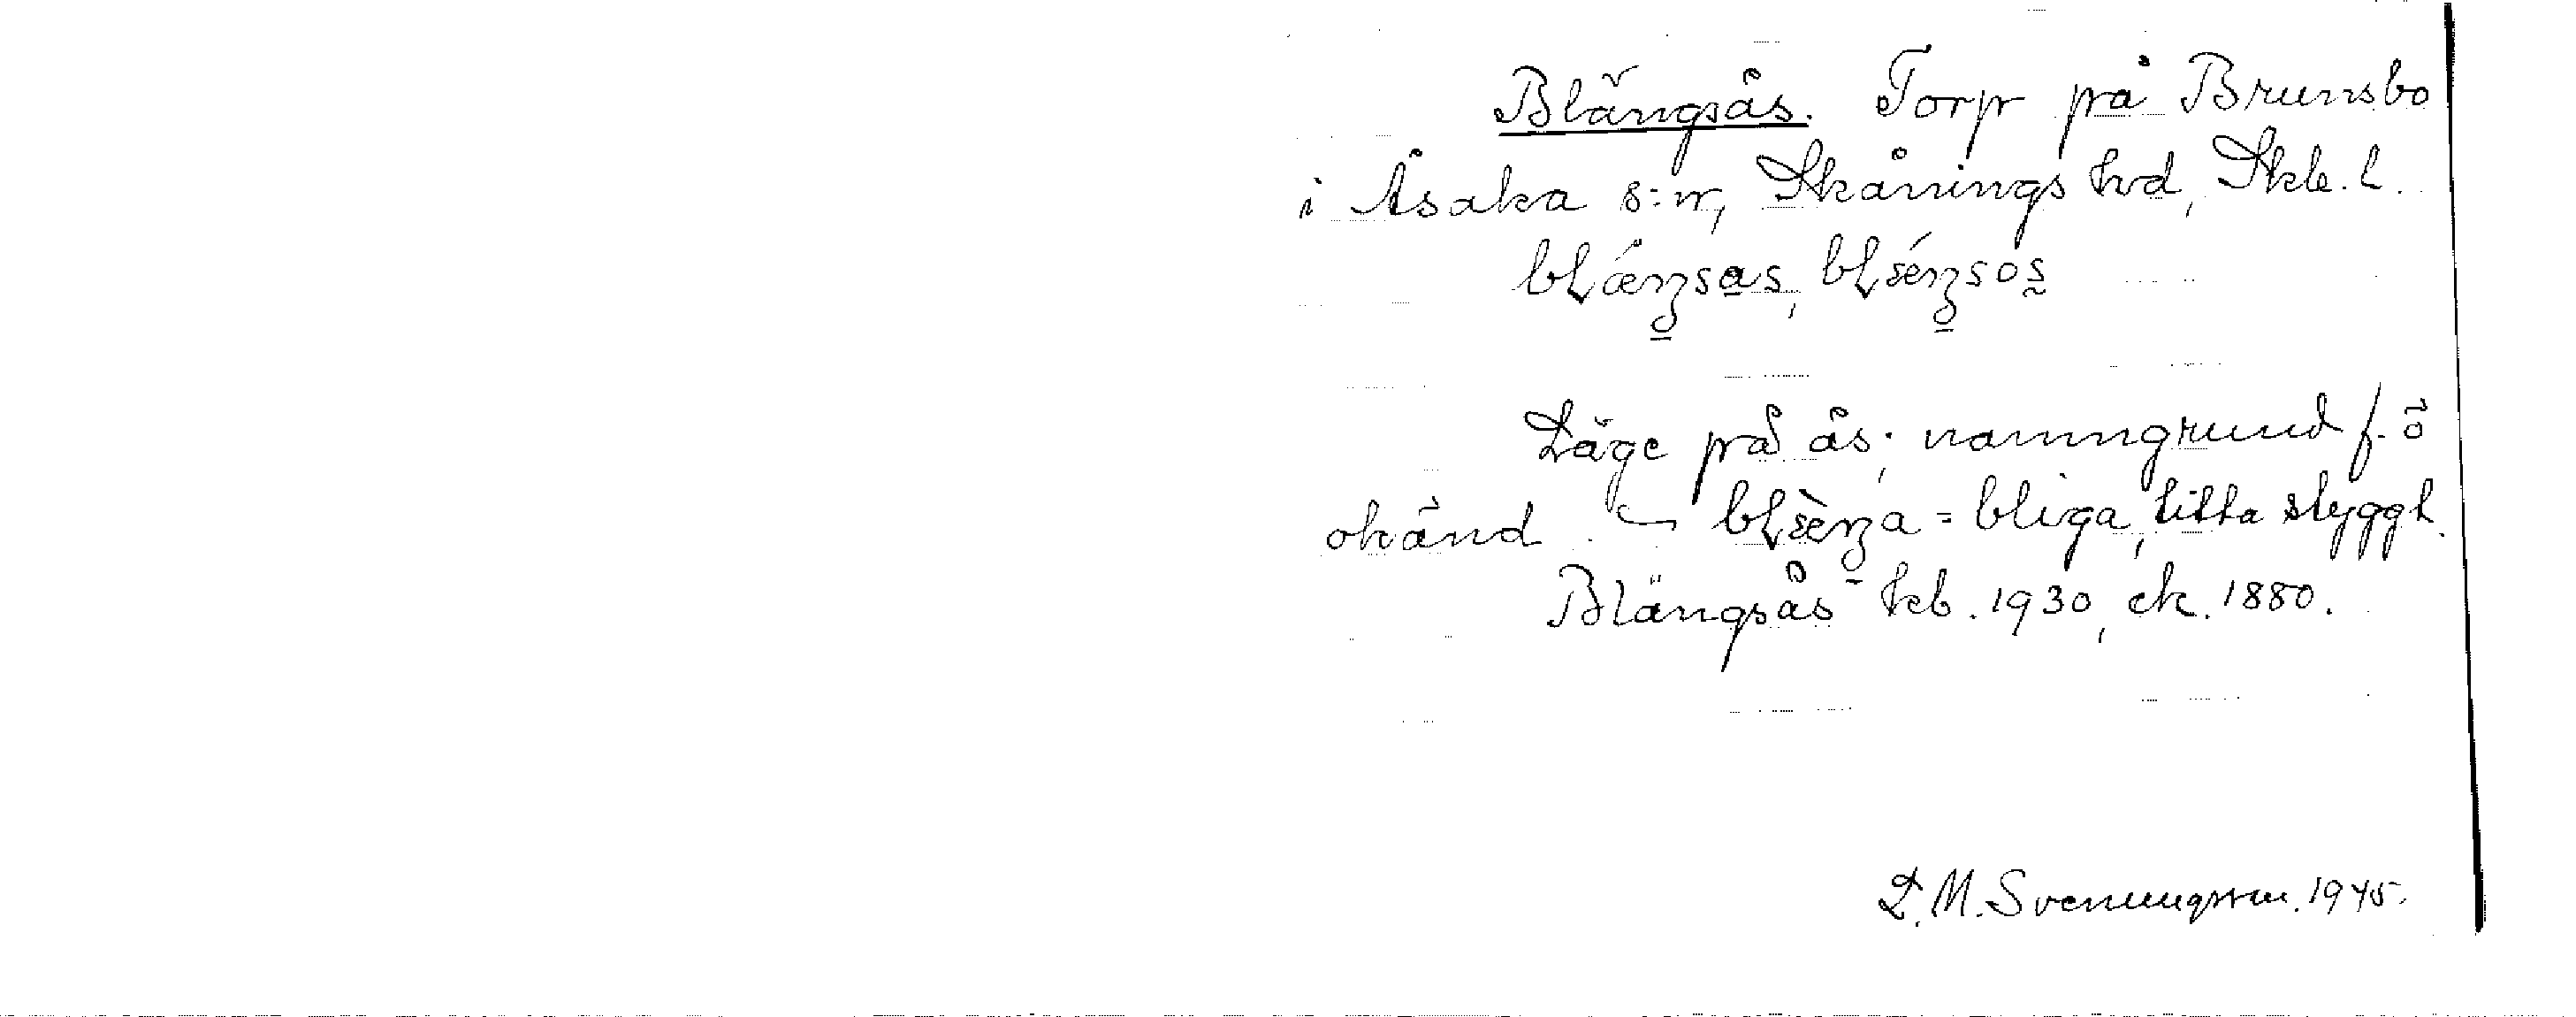 Blängsås. Torp på Brunsbo
i Åsaka s:n, Skånings hd, Skb. l.
Läge på ås; namngrund f. ö
okänd = bliga, titta styggt.
Blängsås kb. 1930, ek. 1880.
L. M. Svenungsson. 1945.